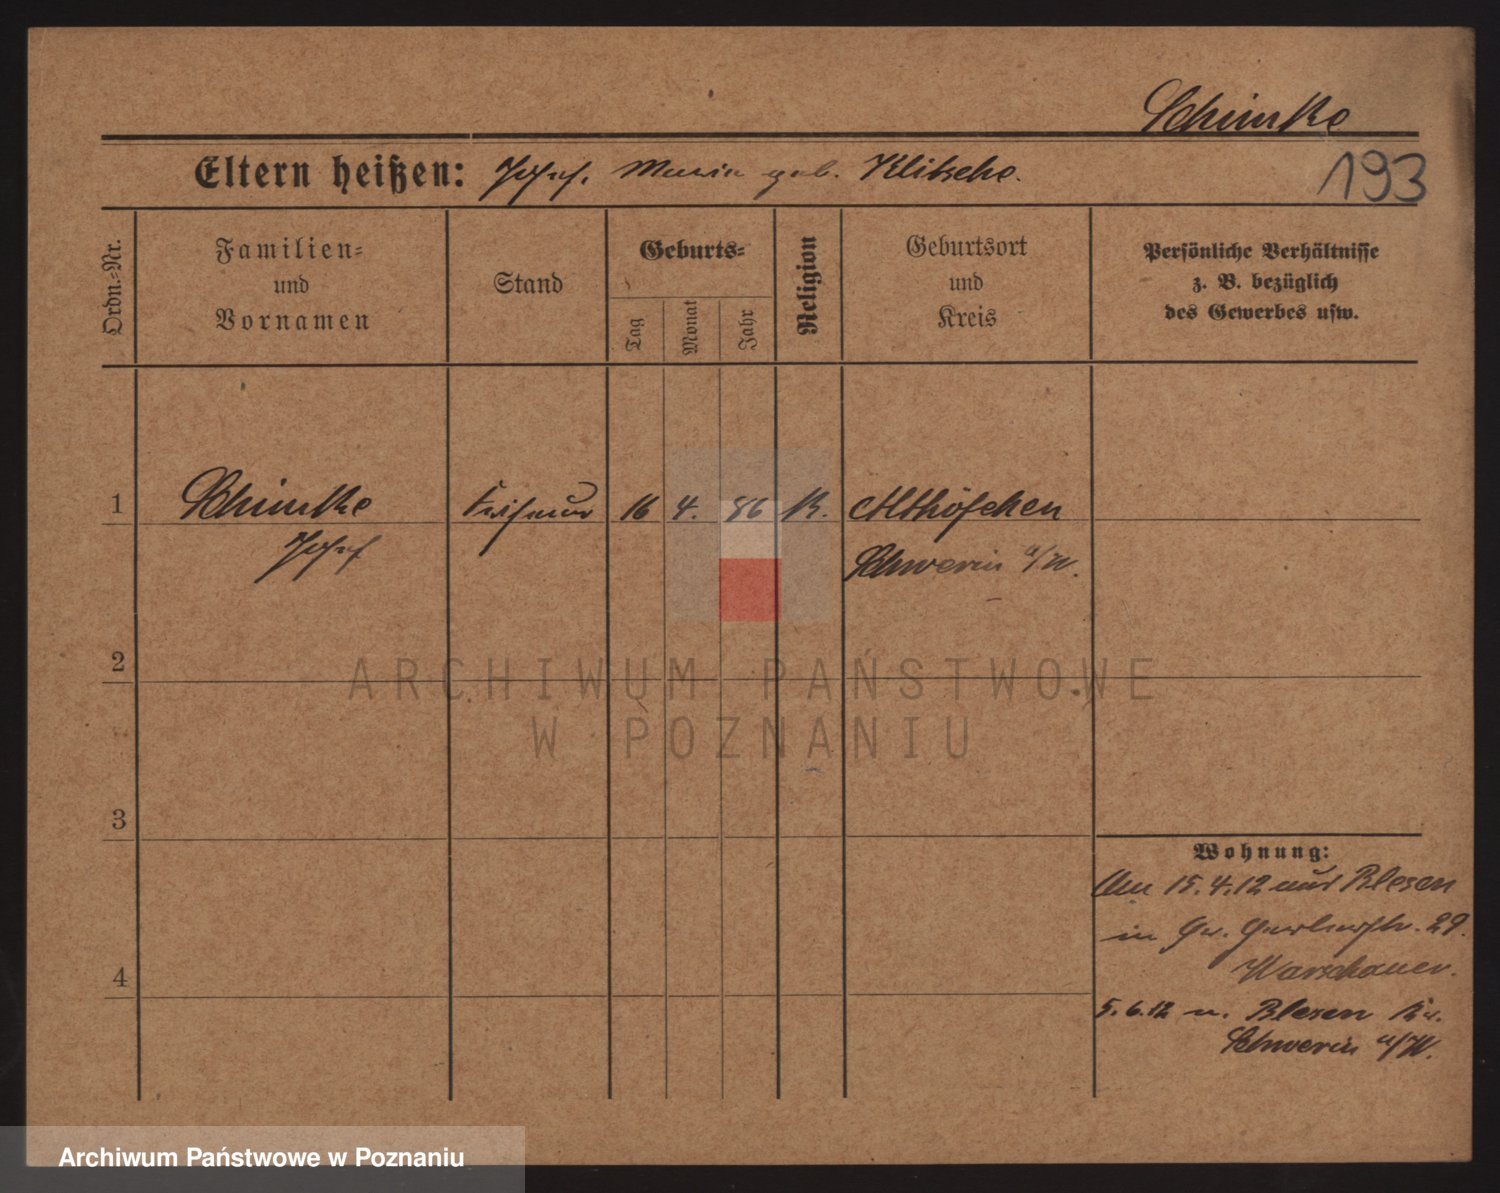 Schimke
Eltern heißen: Josef, Maria geb. Klitsche.
193
Ordn.-Nr.
Familien-
und
Vornamen
Stand
Geburts-
Tag
Monat
Jahr
Religion
Geburtsort
und
Kreis
Persönliche Verhältnisse
z. B. bezüglich
des Gewerbes usw.
1
Schimke
Josef
Friseur
16
4.
86
K.
Althöfchen
Schwerin a/W.
2
3
4
Wohnung:
Am 15.4.12 aus Blesen
in Gr. 29.
Warschauer.
5.6.12 n. Blesen Kr.
Schwerin a/W.
ARCHIWUM PAŃSTWOWE
W POZNANIU
Archiwum Państwowe w Poznaniu